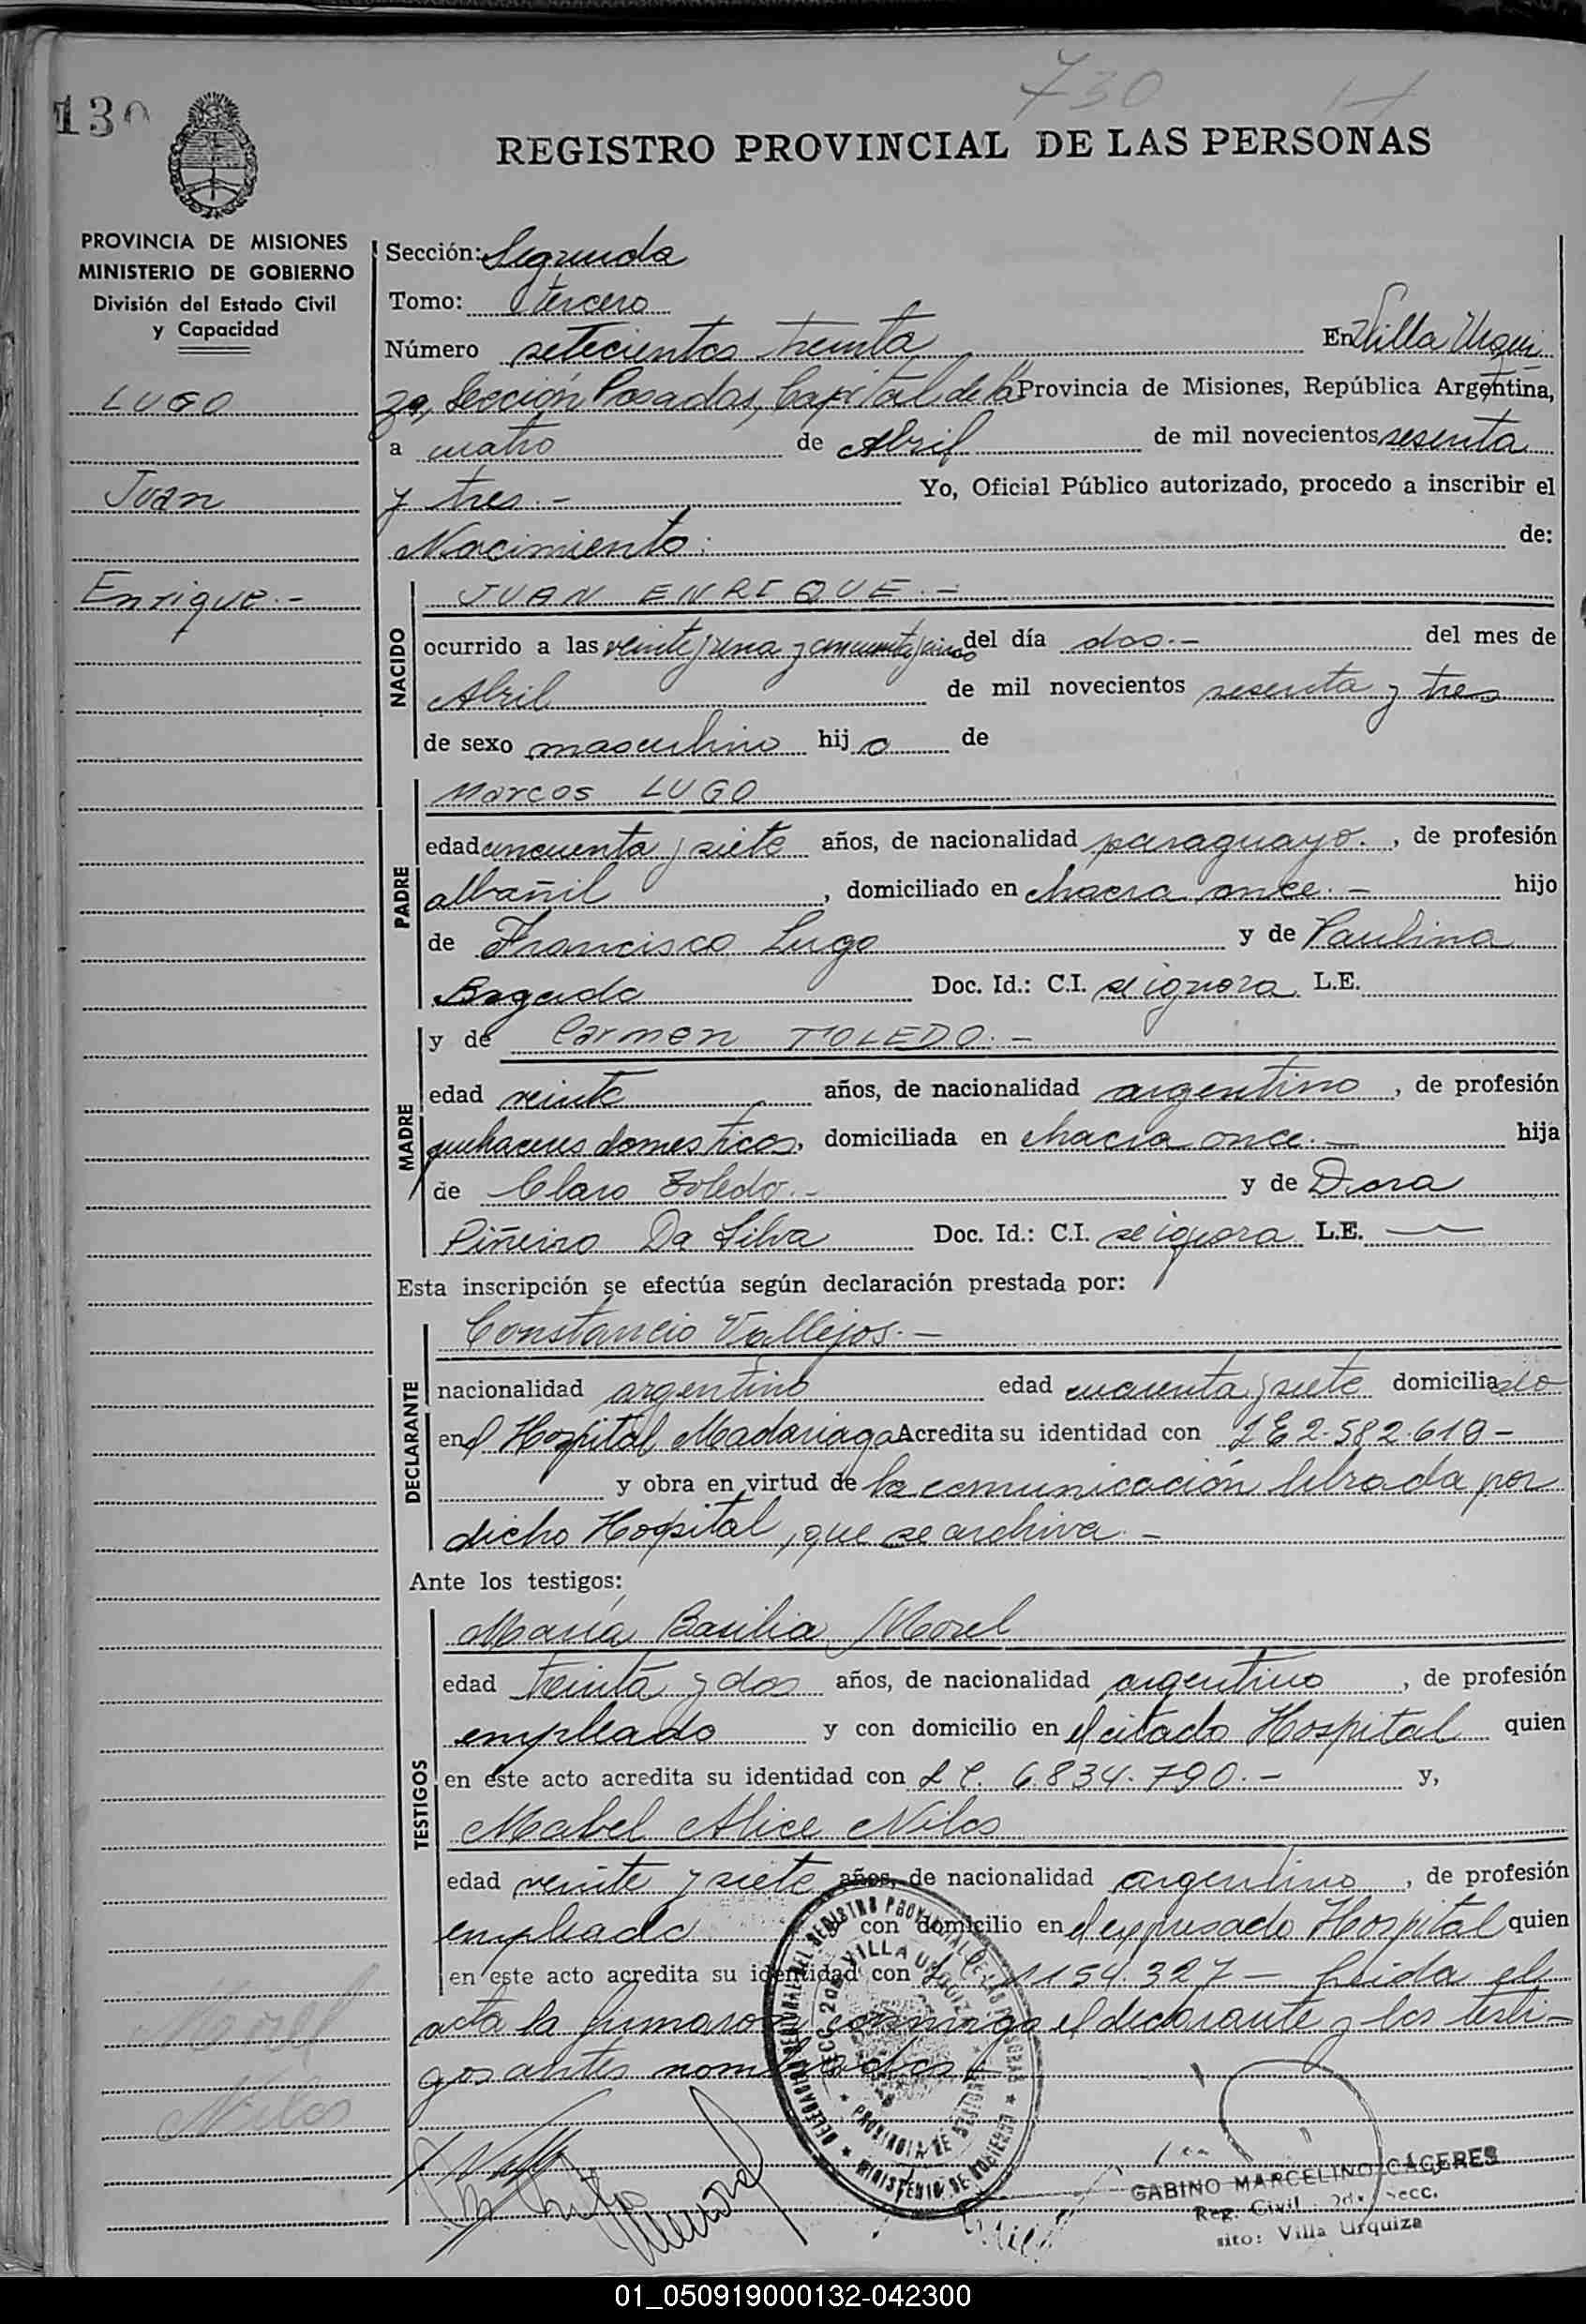 730
130
REGISTRO PROVINCIAL DE LAS PERSONAS
PROVINCIA DE MISIONES
MINISTERIO DE GOBIERNO
División del Estado Civil
y Capacidad
LUGO
Juan
Enrique.-
Sección: Segunda
Tomo: tercero
Número setecientos treinta En Villa Urqui
za, Sección Posadas, Capital de la Provincia de Misiones, República Argentina,
a cuatro de Abril de mil novecientos sesenta
y tres.- Yo, Oficial Público autorizado, procedo a inscribir el
Nacimiento: de:
NACIDO
JUAN ENRIQUE.-
ocurrido a las veinte y una y cincuenta y cinco del día dos.- del mes de
Abril de mil novecientos sesenta y tres
de sexo masculino hijo de
PADRE
Marcos LUGO
edad cincuenta y siete años, de nacionalidad paraguayo. , de profesión
albañil , domiciliado en chacra once.- hijo
de Francisco Lugo y de Paulina
Bogado Doc. Id.: C.I. se ignora L.E.
MADRE
y de Carmen TOLEDO.-
edad veinte años, de nacionalidad argentino , de profesión
quehaceres domesticos, domiciliada en chacra once.- hija
de Claro Toledo.- y de Dora
Piñeiro Da Silva Doc. Id.: C.I. se ignora L.E. —
Esta inscripción se efectúa según declaración prestada por:
DECLARANTE
Constancio Vallejos.-
nacionalidad argentino edad cuarenta y siete domiciliado
en el Hospital Madariaga Acredita su identidad con L E 2.582.610-
y obra en virtud de la comunicación librada por
dicho Hospital, que se archiva.-
Ante los testigos:
TESTIGOS
María Basilia Morel
edad treinta y dos años, de nacionalidad argentino , de profesión
empleado y con domicilio en el citado Hospital quien
en este acto acredita su identidad con L C. 6.834.790.- y,
Mabel Alice Nilos
edad veinte y siete años, de nacionalidad argentino , de profesión
empleado y con domicilio en el expresado Hospital quien
en este acto acredita su identidad con L C. 1154.327- Leida el
acta la firmaron conmigo el declarante y los testi-
gos antes nombrados
Morel
Nilos
DELEGACION DEL REGISTRO PROVINCIAL DE LAS PERSONAS
SECC. 2da VILLA URQUIZA
PROVINCIA DE MISIONES
MINISTERIO DE GOBIERNO
GABINO MARCELINO CACERES
Reg. Civil 2da Secc.
sito: Villa Urquiza
01_050919000132-042300